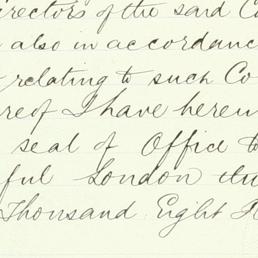 irectors of the said C
also in accordanc
relating to such Co
reof I have hereun
seal of Office to
ful London this
Thousand Eight H